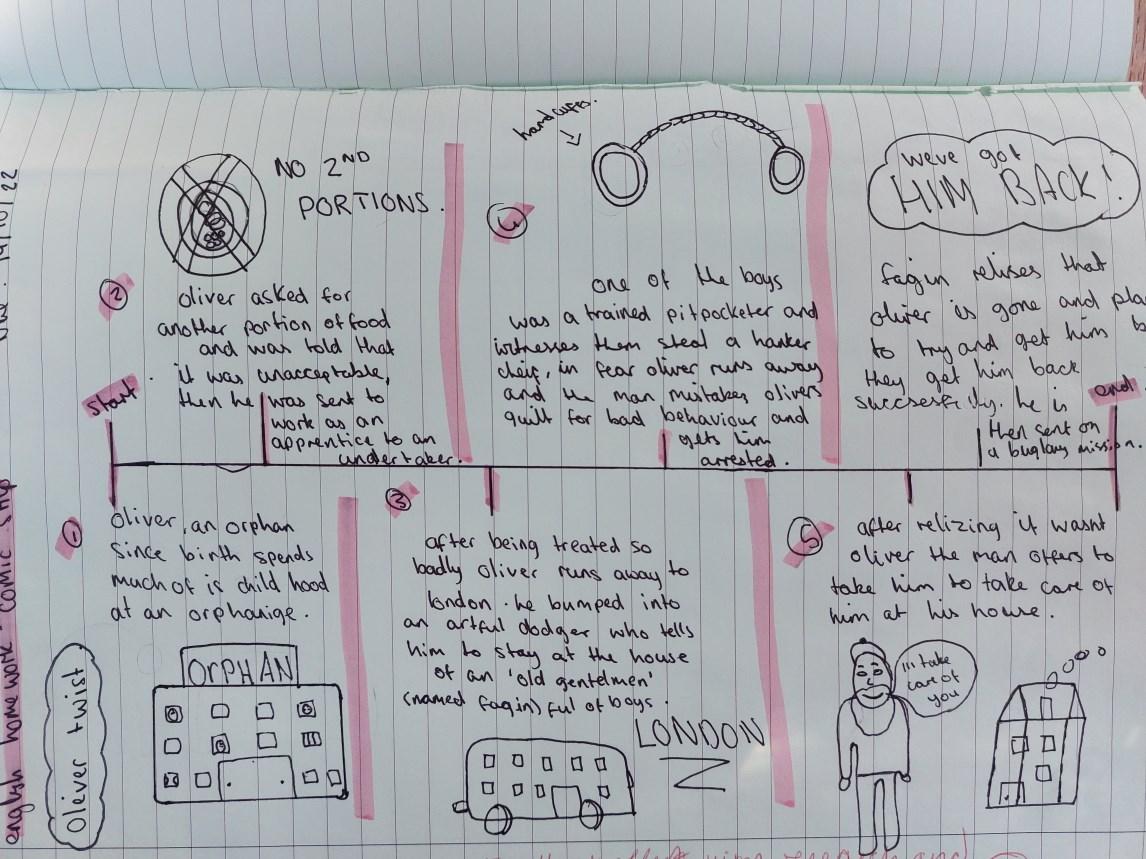 english home work - comic strip
19/10/22
oliver twist
start
①
oliver, an orphan
since birth spends
much of is child hood
at an orphanige.
ORPHAN
NO 2ND
PORTIONS.
②
oliver asked for
another portion of food
and was told that
it was unacceptable,
then he was sent to
work as an
apprentice to an
undertaker.
③
after being treated so
badly oliver runs away to
london. he bumped into
an artful dodger who tells
him to stay at the house
of an 'old gentelmen'
(named fagin) ful of boys.
LONDON
handcufes.
④
one of the boys
was a trained pitpocketer and
witnesses them steal a hanker
cheif, in fear oliver runs away
and the man mistakes olivers
guilt for bad behaviour and
gets him
arrested.
⑤
after relizing it wasnt
oliver the man offers to
take him to take care of
him at his house.
ill take
care of
you
weve got
HIM BACK!
fagin relises that
oliver is gone and
to try and get him
they get him back
he is
then sent on
a buglary mission.
end
research and